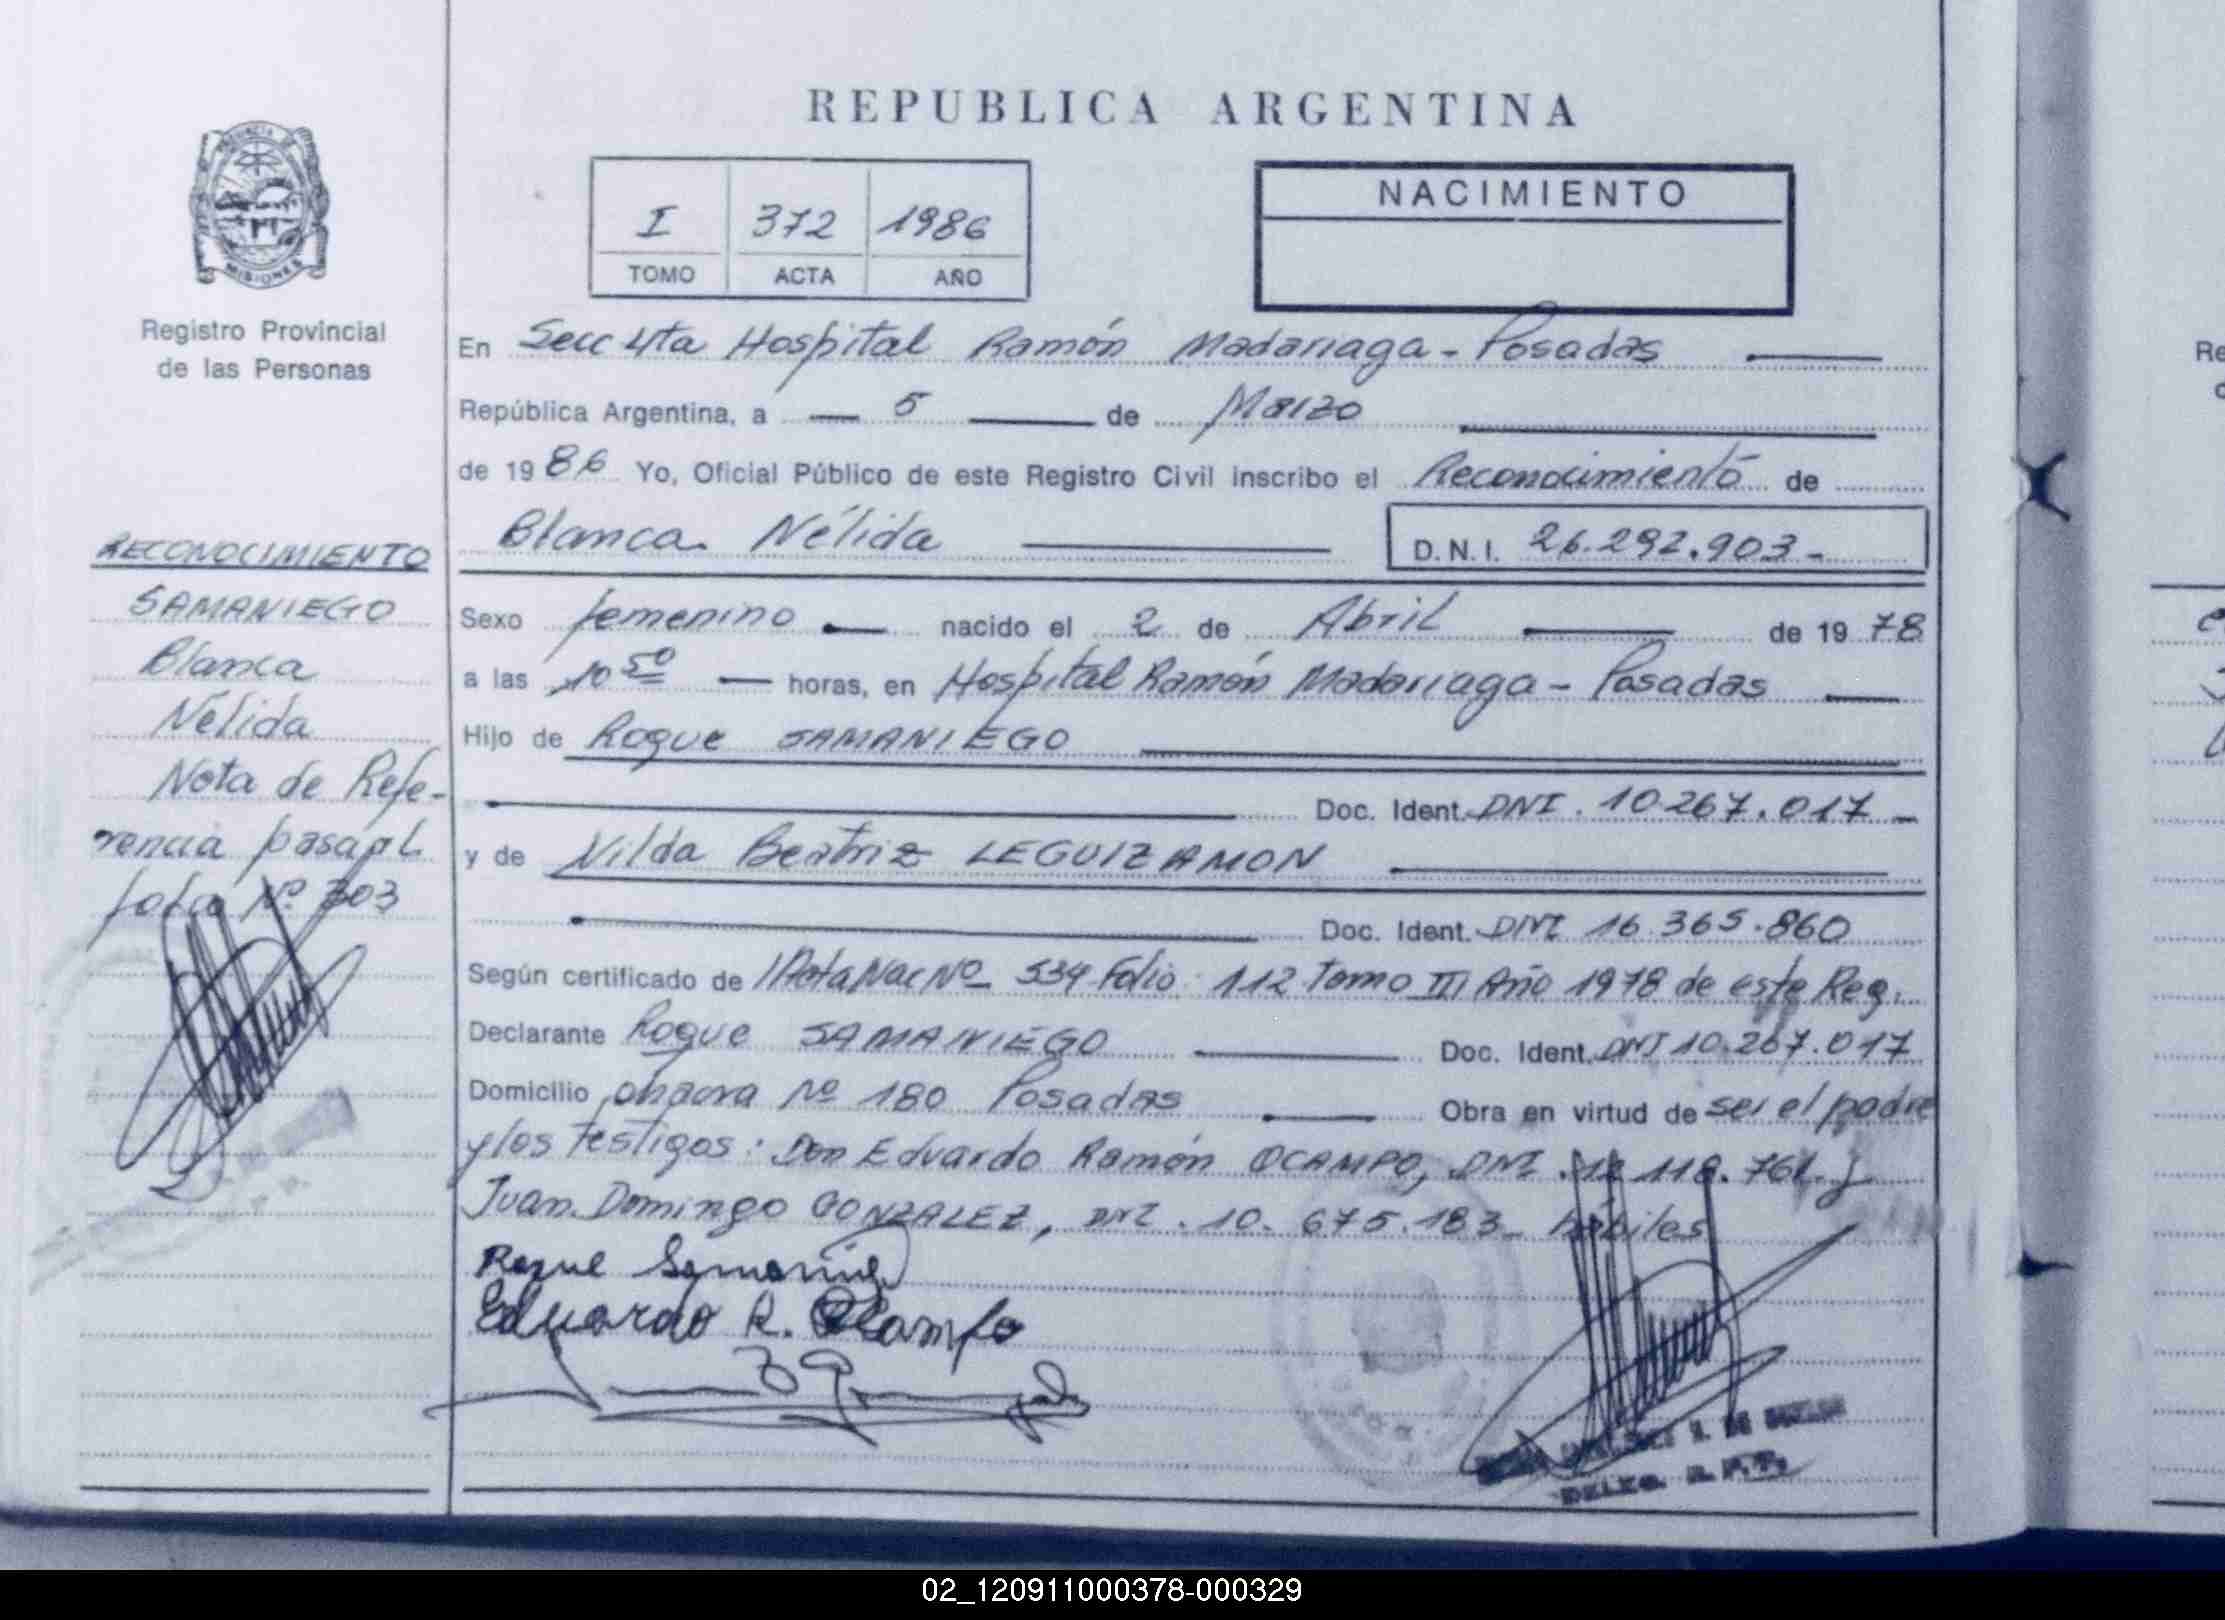 REPUBLICA ARGENTINA
MISIONES
Registro Provincial
de las Personas
I 372 1986
TOMO ACTA AÑO
NACIMIENTO
En Secc 4ta Hospital Ramón Madariaga - Posadas
República Argentina, a 5 de Marzo
de 1986 Yo, Oficial Público de este Registro Civil inscribo el Reconocimiento de
Blanca Nélida D.N.I. 26.292.903-
Sexo femenino nacido el 2 de Abril de 1978
a las 10 50 horas, en Hospital Ramón Madariaga - Posadas
Hijo de Roque SAMANIEGO
Doc. Ident. DNI. 10.267.017-
y de Nilda Beatriz LEGUIZAMON
Doc. Ident. DNI 16.365.860
Según certificado de Acta Nac Nº 534 Folio 112 Tomo III Año 1978 de este Reg.
Declarante Roque SAMANIEGO Doc. Ident. DNI 10.267.017
Domicilio chacra Nº 180 Posadas Obra en virtud de ser el padre
y los testigos: Don Eduardo Ramón OCAMPO, DNI. 12.118.761 y
Juan Domingo GONZALEZ, DNI. 10.675.183 hábiles
Roque Samaniego
Eduardo R. Ocampo
RECONOCIMIENTO
SAMANIEGO
Blanca
Nélida
Nota de Refe-
rencia pasa al
folio Nº 303
DELEG. R. P. P.
Re
02_120911000378-000329